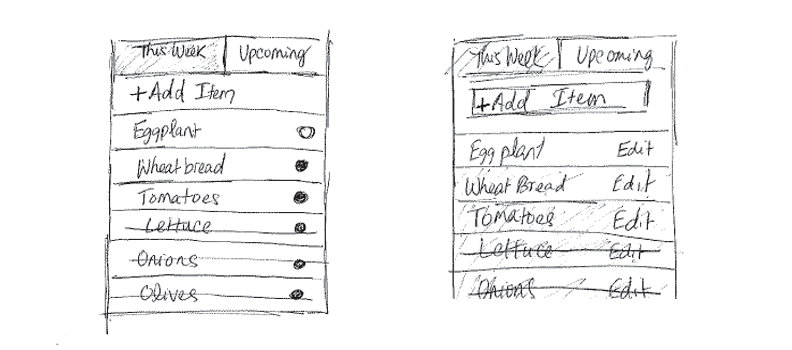 This Week Upcoming
+Add Item
Eggplant
Wheat bread
Tomatoes
Lettuce
Onions
Olives
This Week Upcoming
+Add Item
Eggplant Edit
Wheat Bread Edit
Tomatoes Edit
Lettuce Edit
Onions Edit